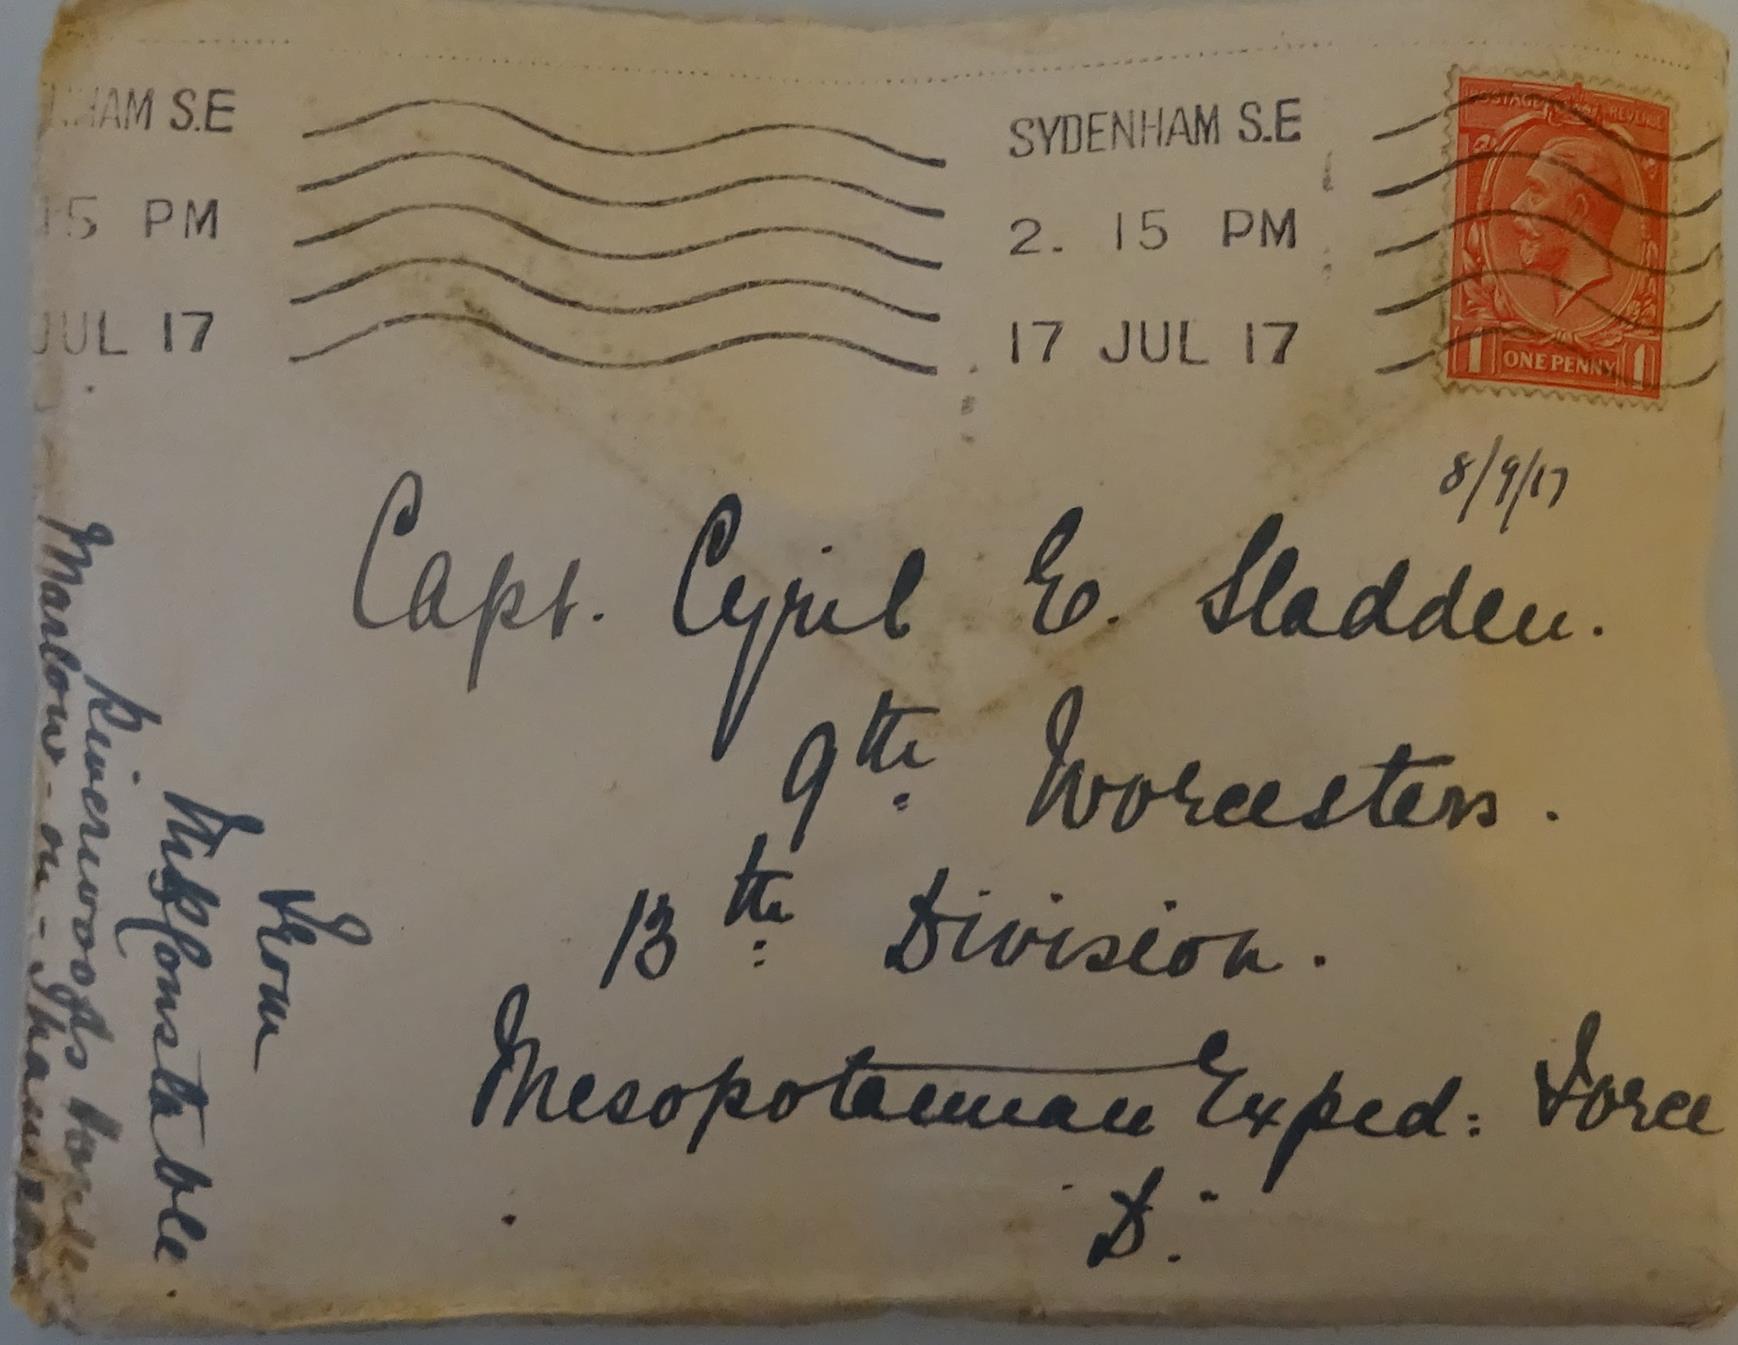 HAM S.E
15 PM
JUL 17
SYDENHAM S.E
2. 15 PM
17 JUL 17
POSTAGE REVENUE
1 ONE PENNY 1
8/9/17
Capt. Cyril E. Sladden.
9th Worcesters.
13th Division.
Mesopotamian Exped: Force
D.
From
Constable.
Riverwoods House
Marlow-on-Thames